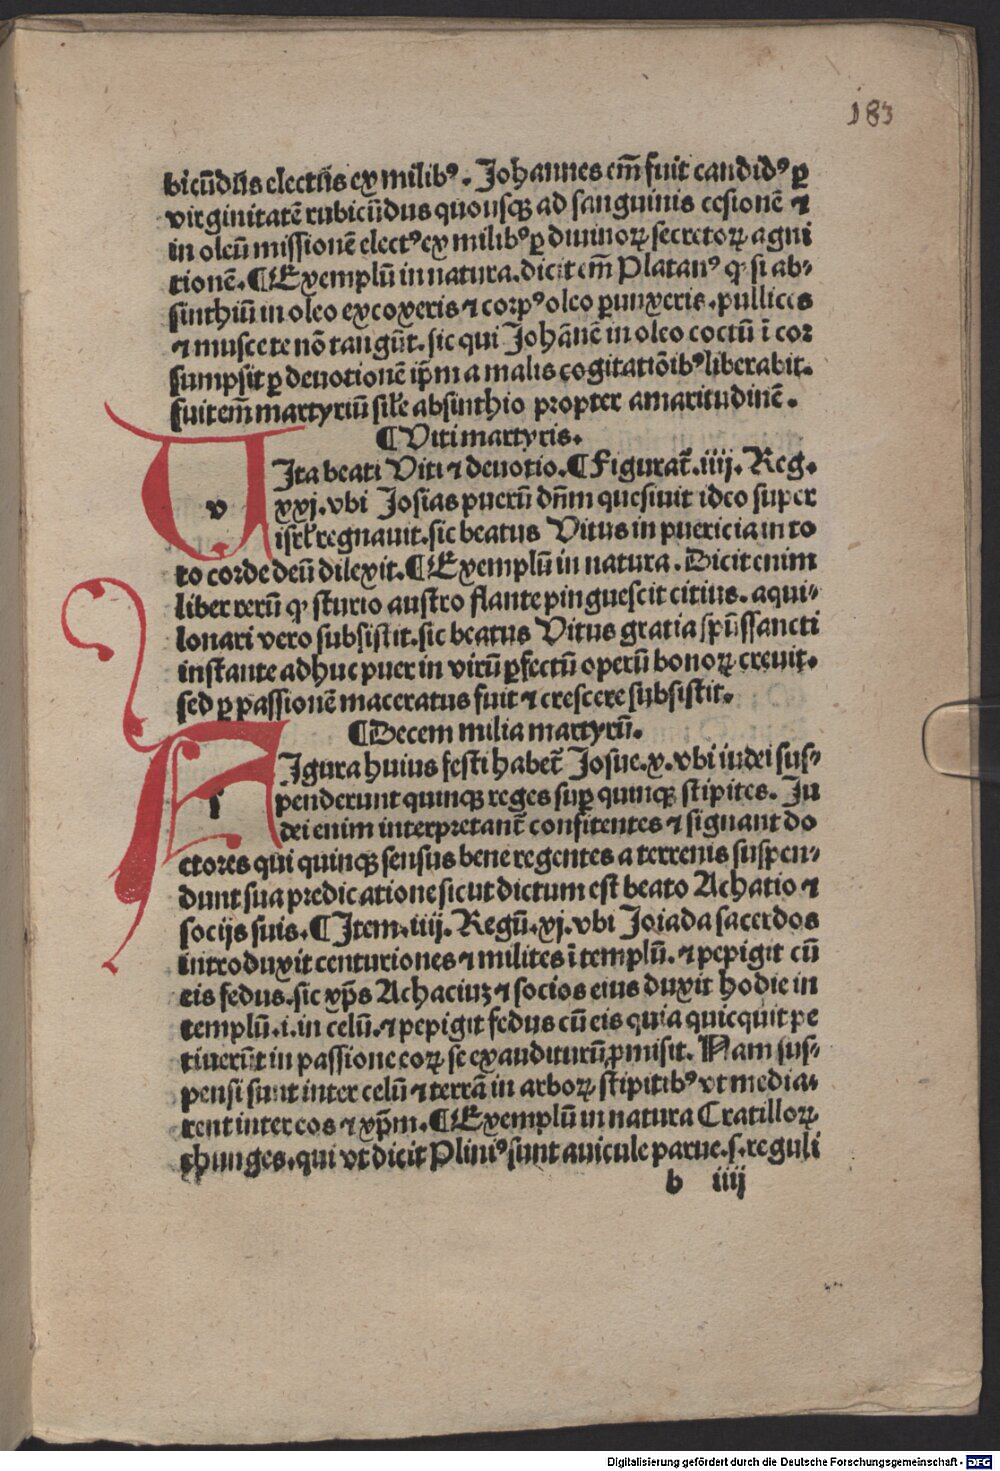 183
bicūdus electus ex milibꝰ. Johannes em̄ fuit candidꝰ ꝑ
virginitatē rubicūdus quousqꝫ ad sanguinis cesionē ⁊
in oleū missionē electꝰ ex milibꝰ ꝑ diuinoꝝ secretoꝝ agni
tionē. ¶ Exemplū in natura. dicit em̄ Platanꝰ ꝙ si ab⸗
sinthiū in oleo excoxeris ⁊ corpꝰ oleo ꝑunxeris. pullices
⁊ musce te nō tangūt. sic qui Johānē in oleo coctū ī cor
sumpsit ꝑ deuotionē ip̄m a malis cogitatiōibꝰ liberabit.
fuit em̄ martyriū sil̄e absinthio propter amaritudinē.
¶ Viti martyris.
v
Ita beati Viti ⁊ deuotio. ¶ Figurat̄. iiij. Reg.
xxj. vbi Josias puerū dn̄m quesiuit ideo super
isrl̄ regnauit. sic beatus Vitus in puericia in to
to corde deū dilexit. ¶ Exemplū in natura. Dicit enim
liber rerū ꝙ sturio austro flante pinguescit citius. aqui⸗
lonari vero subsistit. sic beatus Vitus gratia spūssancti
instante adhuc puer in virū ꝑfectū operū bonoꝝ creuit.
sed ꝑ passionē maceratus fuit ⁊ crescere subsistit.
¶ Decem milia martyrū.
f
Igura huius festi habet̄ Josue. x. vbi iudei sus⸗
penderunt quinqꝫ reges suꝑ quinqꝫ stipites. Ju
dei enim interpretant̄ confitentes ⁊ signant do
ctores qui quinqꝫ sensus bene regentes a terrenis suspen⸗
dunt sua predicatione sicut dictum est beato Achatio ⁊
socijs suis. ¶ Item. iiij. Regū. xj. vbi Joiada sacerdos
introduxit centuriones ⁊ milites ī templū. ⁊ pepigit cū
eis fedus. sic xp̄s Achaciuꝫ ⁊ socios eius duxit hodie in
templū. i. in celū. ⁊ pepigit fedus cū eis quia quicquit pe
tiuerūt in passione eoꝝ se exauditurū ꝓmisit. Nam sus⸗
pensi sunt inter celū ⁊ terrā in arboꝝ stipitibꝰ vt media⸗
rent inter eos ⁊ xp̄m. ¶ Exemplū in natura Cratilloꝝ
chunges. qui vt dicit Pliniꝰ sunt auicule parue. s. reguli
b iiij
Digitalisierung gefördert durch die Deutsche Forschungsgemeinschaft - DFG